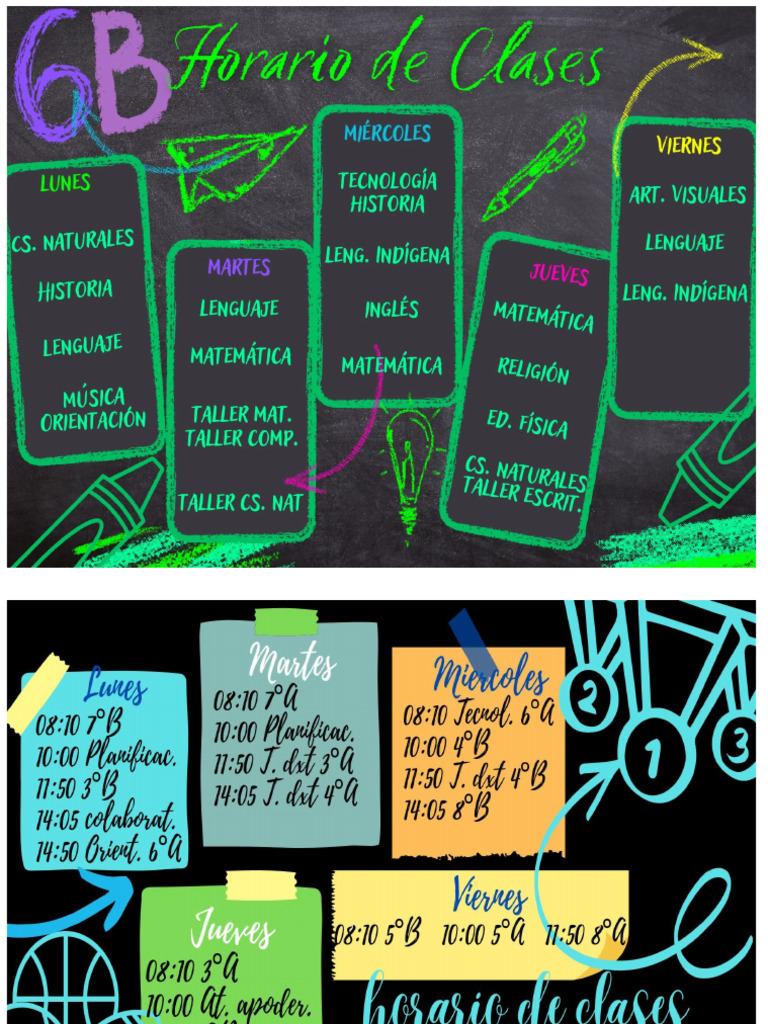 6B Horario de Clases
LUNES
CS. NATURALES
HISTORIA
LENGUAJE
MÚSICA
ORIENTACIÓN
MARTES
LENGUAJE
MATEMÁTICA
TALLER MAT.
TALLER COMP.
TALLER CS. NAT
MIÉRCOLES
TECNOLOGÍA
HISTORIA
LENG. INDÍGENA
INGLÉS
MATEMÁTICA
JUEVES
MATEMÁTICA
RELIGIÓN
ED. FÍSICA
CS. NATURALES
TALLER ESCRIT.
VIERNES
ART. VISUALES
LENGUAJE
LENG. INDÍGENA
Lunes
08:10 7°B
10:00 Planificac.
11:50 3°B
14:05 colaborat.
14:50 Orient. 6°A
Martes
08:10 7°A
10:00 Planificac.
11:50 T. dxt 3°A
14:05 T. dxt 4°A
Miercoles
08:10 Tecnol. 6°A
10:00 4°B
11:50 T. dxt 4°B
14:05 8°B
2
1
3
Jueves
08:10 3°A
10:00 At. apoder.
Viernes
08:10 5°B 10:00 5°A 11:50 8°A
horario de clases